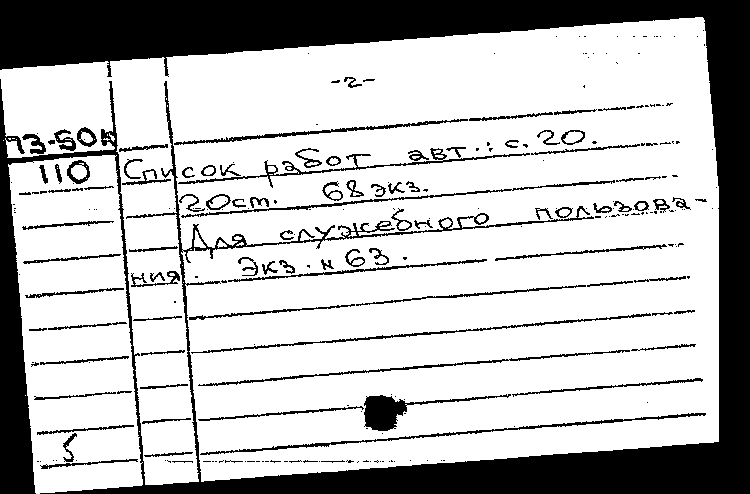 -2-
73-50А
110 Список работ авт.: с. 20.
20ст. 68 экз.
Для служебного пользова-
ния. Экз. н 63.
5